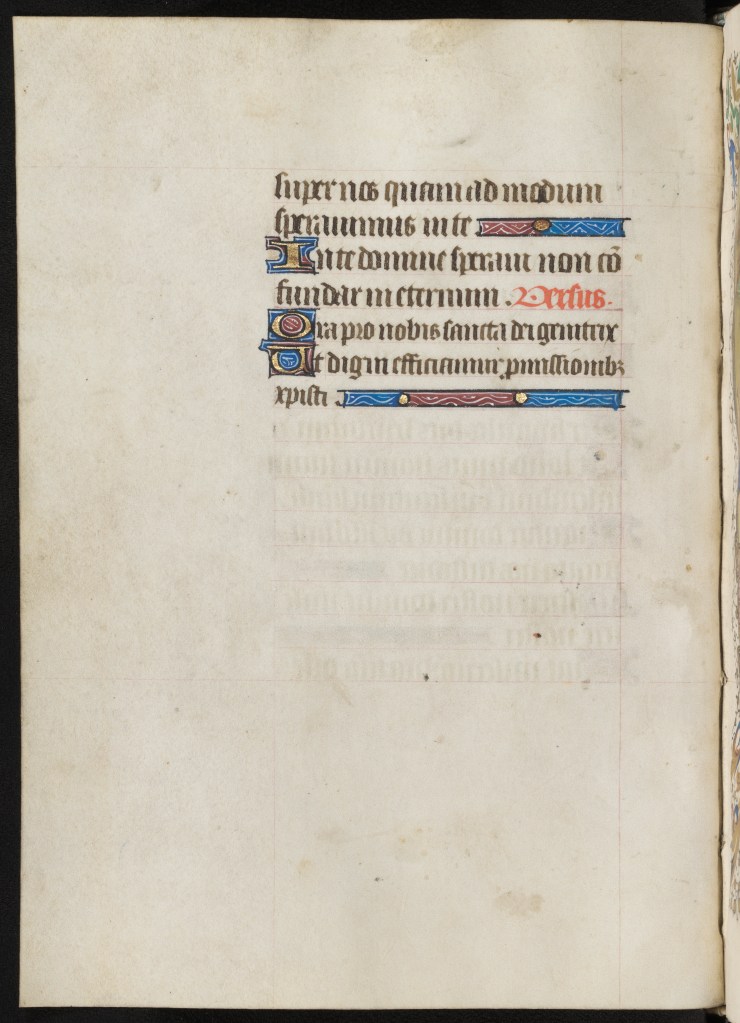 super nos quemadmodum
sperauimus in te
In te domine speraui non cō
fundar in eternum. Versus.
Ora pro nobis sancta dei genitrix
Ut digni efficiamur pmissionibꝫ
xpisti.